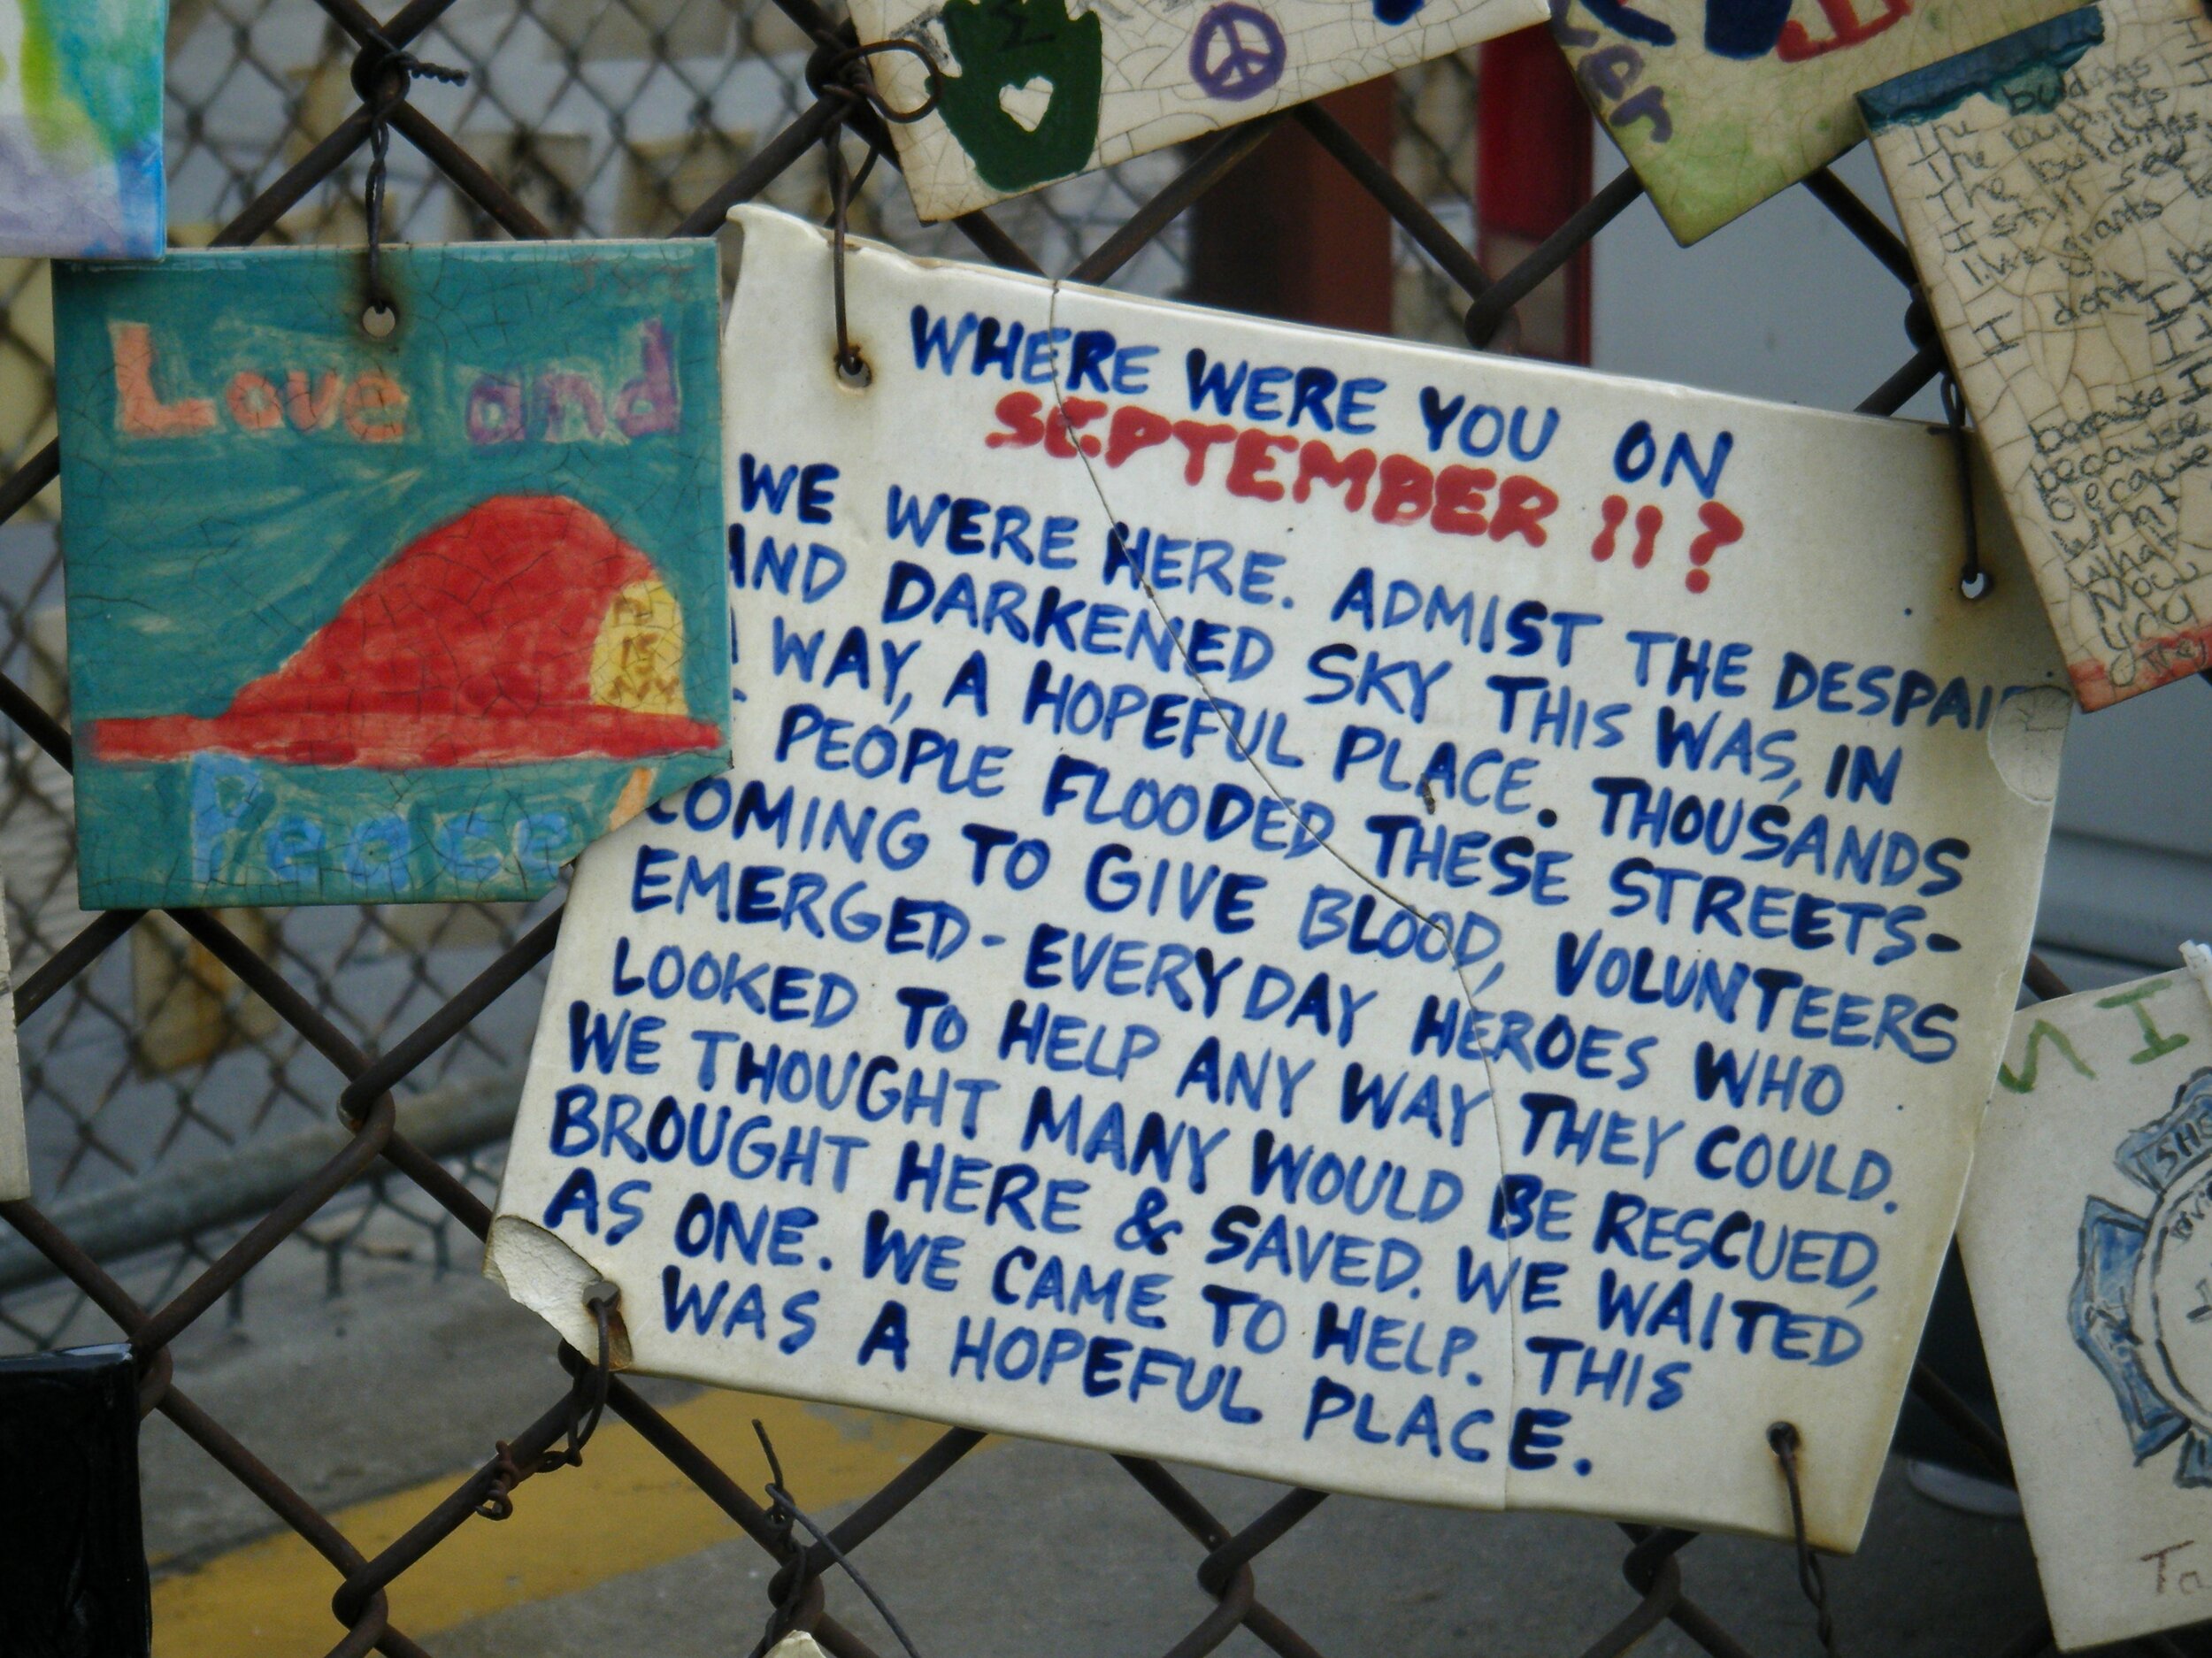 Love and
Peace
IS
NY
WHERE WERE YOU ON
SEPTEMBER 11?
WE WERE HERE. ADMIST THE DESPAIR
AND DARKENED SKY THIS WAS, IN
A WAY, A HOPEFUL PLACE. THOUSANDS
PEOPLE FLOODED THESE STREETS-
COMING TO GIVE BLOOD, VOLUNTEERS
EMERGED - EVERYDAY HEROES WHO
LOOKED TO HELP ANY WAY THEY COULD.
WE THOUGHT MANY WOULD BE RESCUED,
BROUGHT HERE & SAVED. WE WAITED
AS ONE. WE CAME TO HELP. THIS
WAS A HOPEFUL PLACE.
The buildings
The buildings
I still see
I
don't
because
because
because
What
What
Now